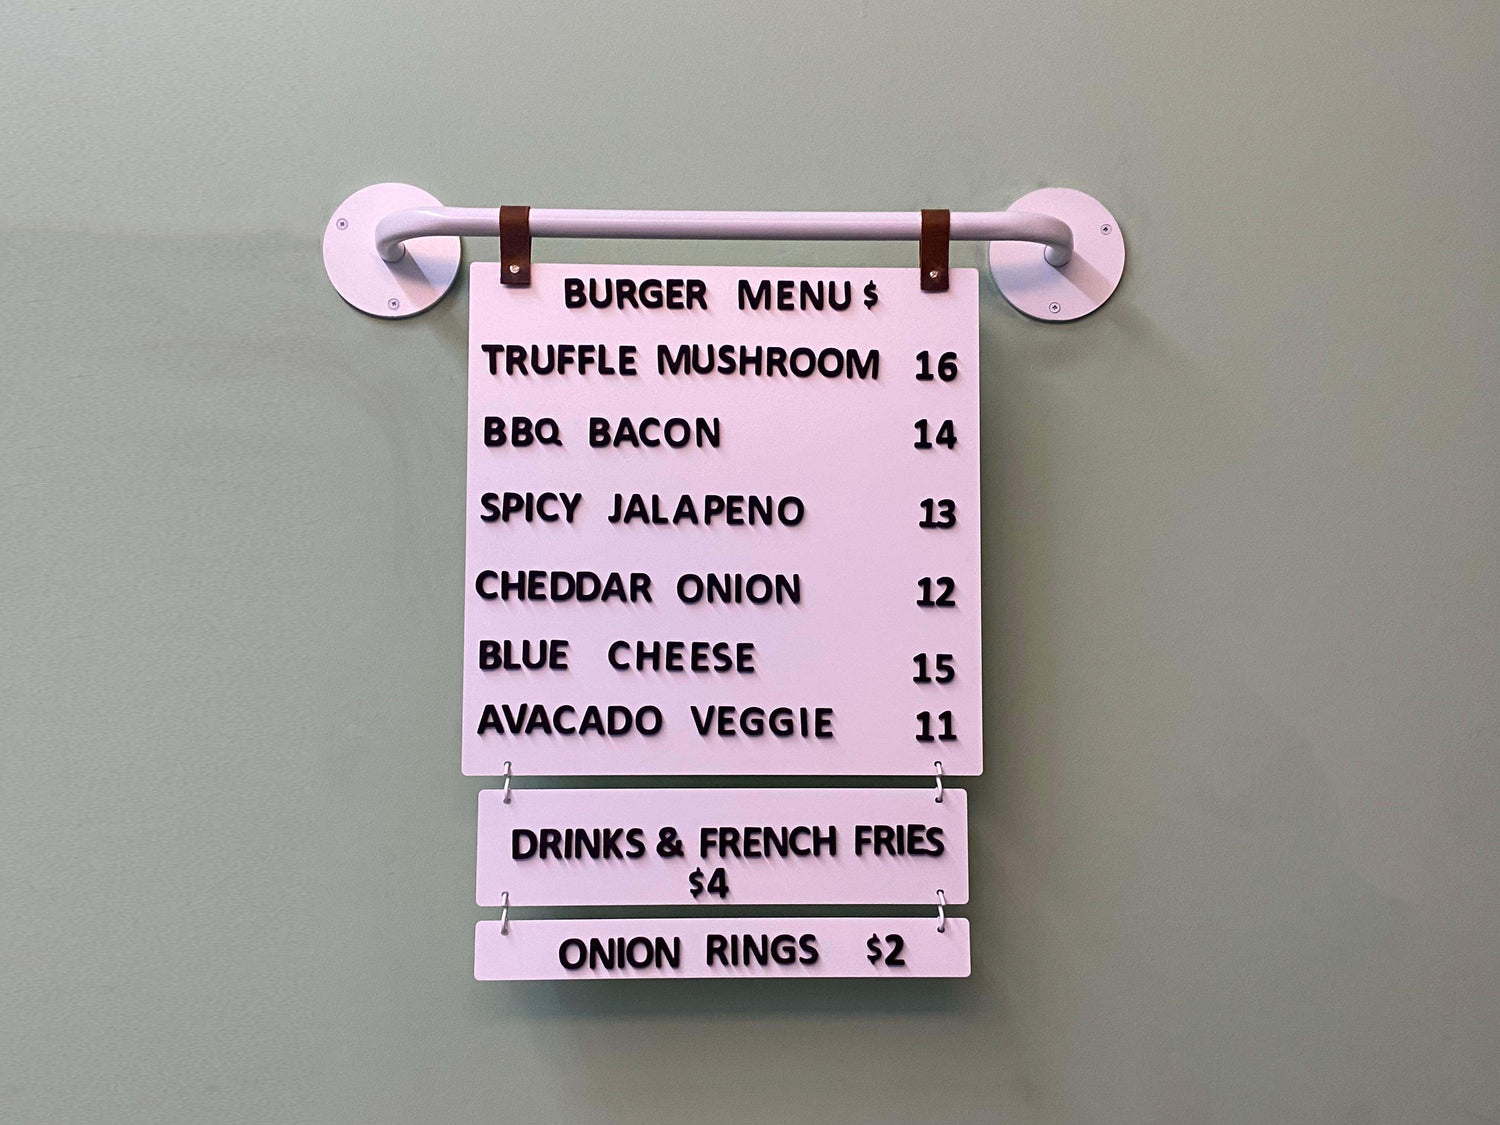 BURGER MENU $
TRUFFLE MUSHROOM 16
BBQ BACON 14
SPICY JALAPENO 13
CHEDDAR ONION 12
BLUE CHEESE 15
AVACADO VEGGIE 11
DRINKS & FRENCH FRIES
$4
ONION RINGS $2